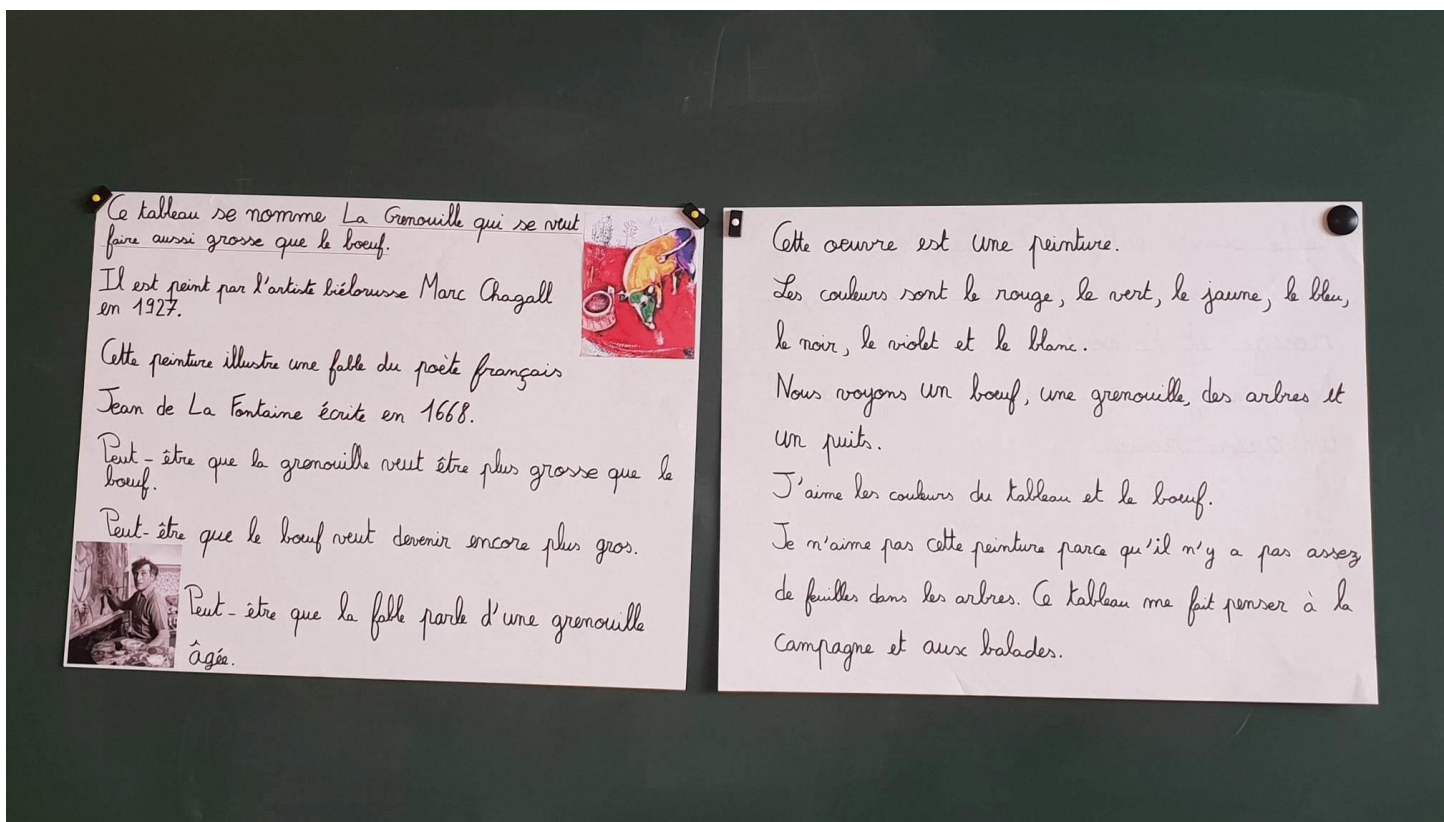 Ce tableau se nomme La Grenouille qui se veut
faire aussi grosse que le boeuf.
Il est peint par l'artiste biélorusse Marc Chagall
en 1927.
Cette peinture illustre une fable du poète français
Jean de La Fontaine écrite en 1668.
Peut-être que la grenouille veut être plus grosse que le
boeuf.
Peut-être que le boeuf veut devenir encore plus gros.
Peut-être que la fable parle d'une grenouille
âgée.
Cette oeuvre est une peinture.
Les couleurs sont le rouge, le vert, le jaune, le bleu,
le noir, le violet et le blanc.
Nous voyons un boeuf, une grenouille, des arbres et
un puits.
J'aime les couleurs du tableau et le boeuf.
Je n'aime pas cette peinture parce qu'il n'y a pas assez
de feuilles dans les arbres. Ce tableau me fait penser à la
campagne et aux balades.